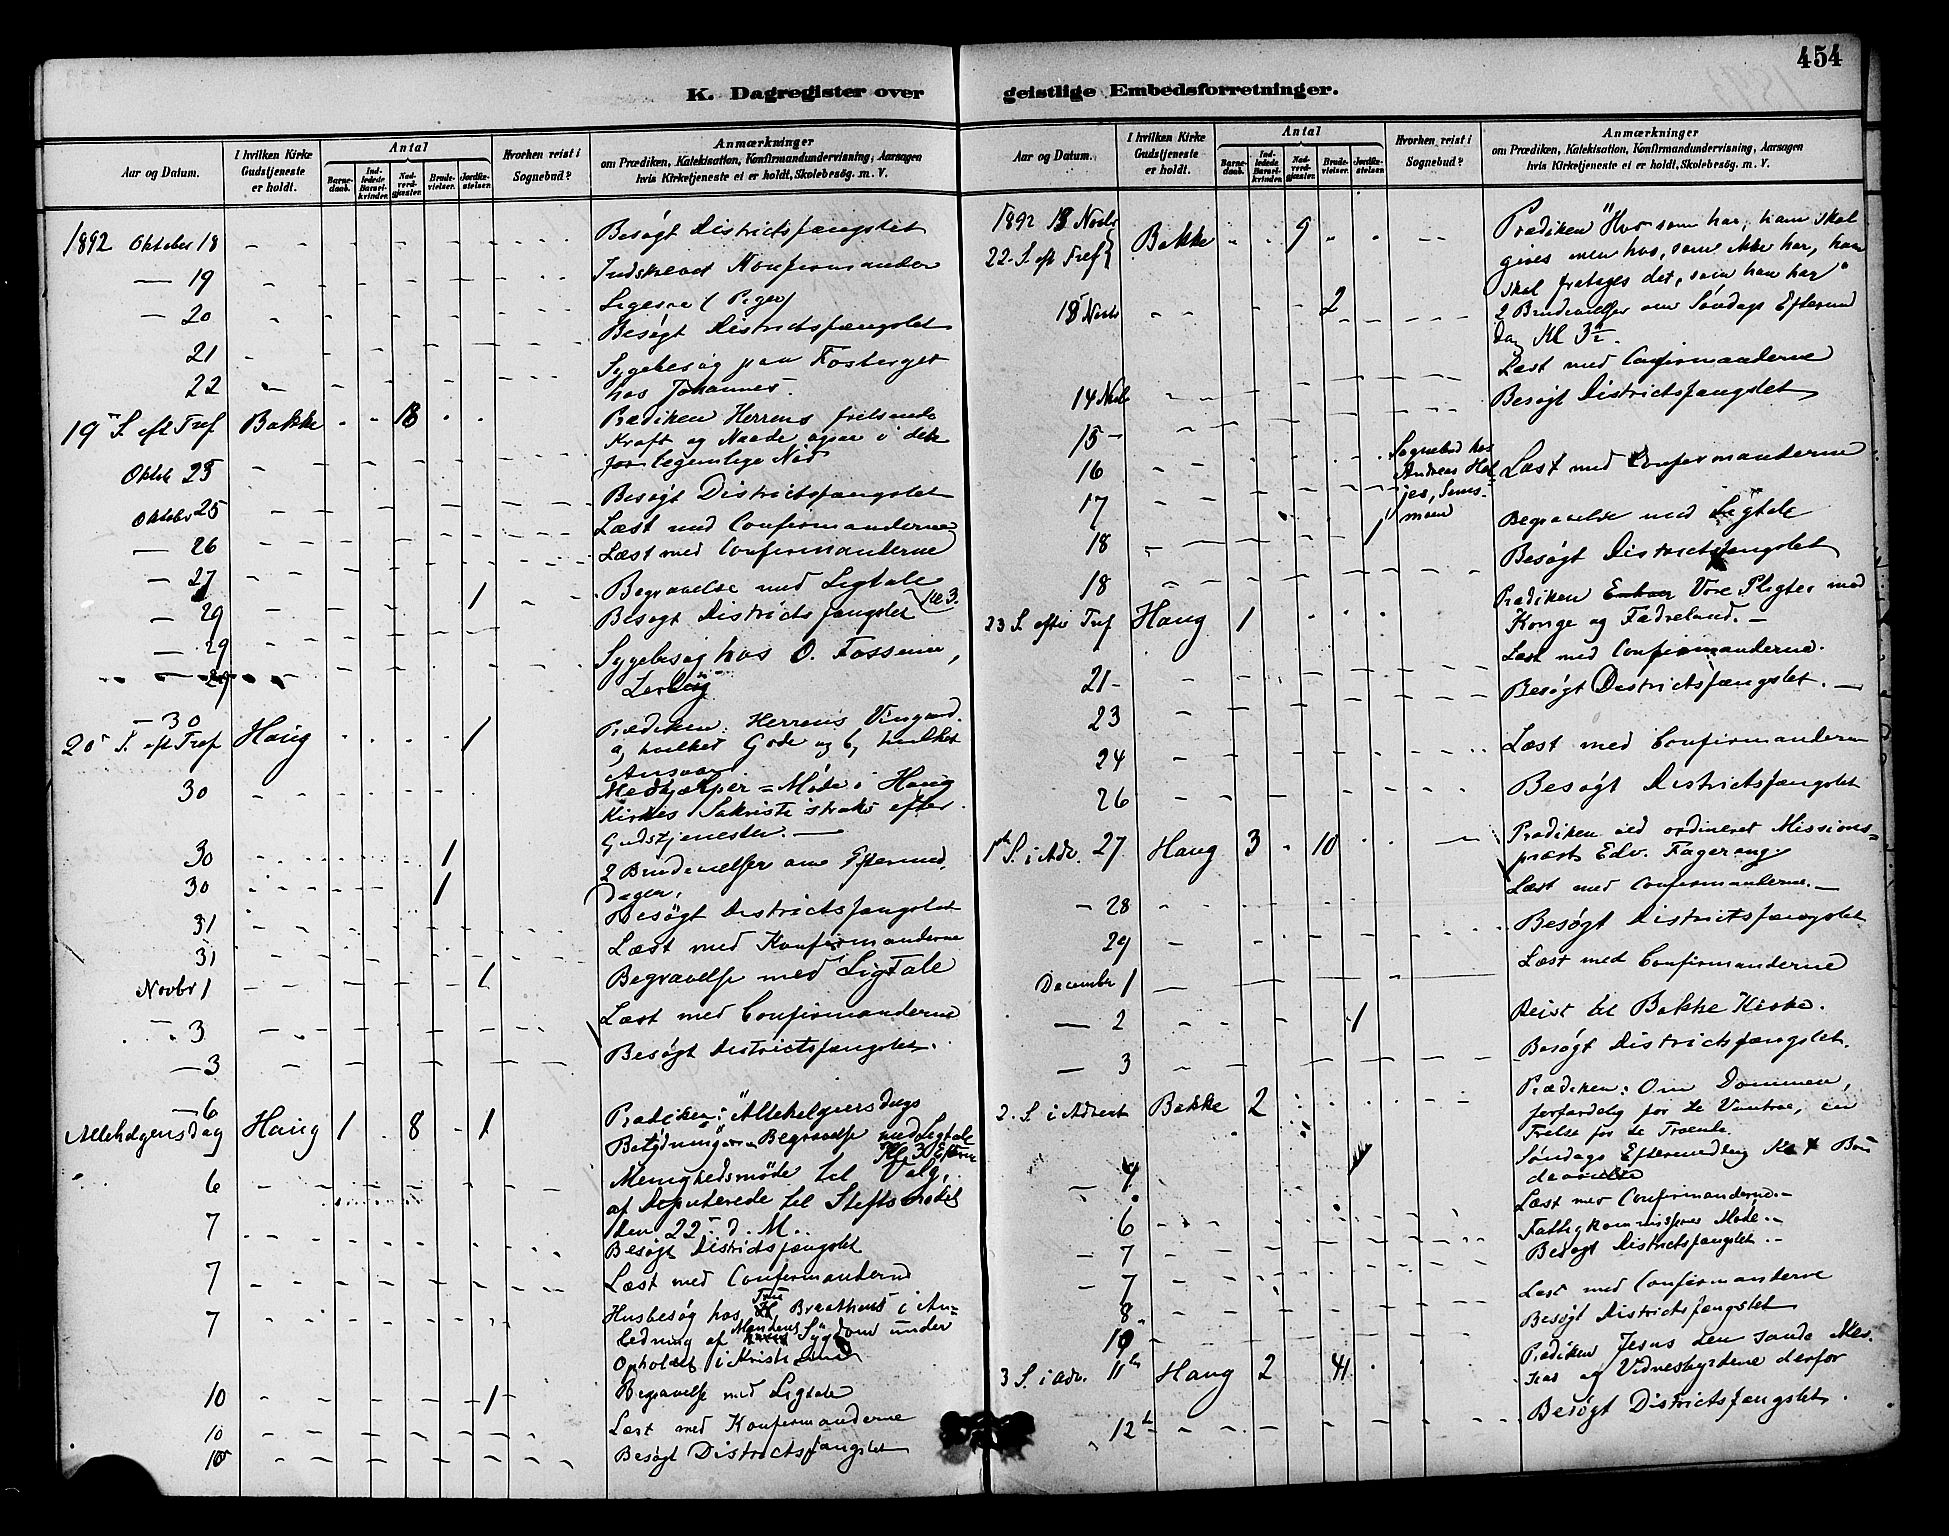 454
K. Dagregister over geistlige Embedsforretninger.
Aar og Datum.
I hvilken Kirke Gudstjeneste er holdt.
Antal
Barnedaab.
Indledede Barselkvinder.
Nadverdgjæster.
Brudevielser.
Jordfæstelser.
Hvorhen reist i Sognebud?
Anmærkninger
om Prædiken, Katekisation, Konfirmandundervisning, Aarsagen
hvis Kirketjeneste ei er holdt, Skolebesøg. m. V.
1892 Oktober 18 Besøgt Districtsfængslet
— 19 Indskrevet Konfirmander
— 20 Ligesaa (Piger)
21 Besøgt Districtsfængslet
22 Sygebesøg paa Fosberget
hos Johannes.
19 S. eft Tref Bakke 18 Prædiken Herrens frelsende
Kraft og Naade ogsaa i den
legemlige Nød
Oktob 23
Oktobr 25 Besøgt Districtsfængslet
— 26 Læst med Confirmanderne
— 27 Læst med Confirmanderne
— 29 1 Begravelse med Ligtale Kl 3.
— 29 Besøgt Districtsfængslet
— 29 Sygebesøg hos O. Fossen,
— 30
20 S. eft Tref Haug 1 Prædiken: Herrens Vingaard.
a, hvilket Gode og b, hvilket
Ansvar
30 Medhjælper = Møde i Haug
Kirkes Sakristi straks efter
Gudstjenesten. —
30 1 2 Brudevielser om Eftermid
30 1 dagen.
31 Besøgt Districtsfængslet
31 Læst med Konfirmanderne
Novbr 1 1 Begravelse med Ligtale
— 3 Læst med Confirmanderne
— 3 Besøgt Districtsfængslet.
— 6
Allehelgensdag Haug 1 8 1 Prædiken: "Allehelgensdags
Betydning" Begravelse med Ligtale
Kl 3 Efterm
6 Menighedsmøde til Valg,
af Deputerede til Stiftsmødet
den 22 d. M.
7 Besøgt Districtsfængslet
7 Læst med Confirmanderne
7 Husbesøg hos Fru Braathens i An=
ledning af Mandens Sygdom under
Opholdet i Kristiania
10 1 Begravelse med Ligtale
10 Læst med Konfirmanderne
10 Besøgt Districtsfængslet
Aar og Datum.
I hvilken Kirke Gudstjeneste er holdt.
Antal
Barnedaab.
Indledede Barselkvinder.
Nadverdgjæster.
Brudevielser.
Jordfæstelser.
Hvorhen reist i Sognebud?
Anmærkninger
om Prædiken, Katekisation, Konfirmandundervisning, Aarsagen
hvis Kirketjeneste ei er holdt, Skolebesøg. m. V.
1892 13 Novbr
22. S. eft Tref Bakke 9 Prædiken "Hvo som har, ham skal
gives men hos, som ikke har, ham
skal fratages det, som han har"
13 Novbr 2 2 Brudevielser om Søndags Eftermid
dag Kl 3½.
Læst med Confirmanderne
14 Novbr Besøgt Districtsfængslet
15 —
16 Sognebud hos
Andreas Hel
jes, Sems=
moen
Læst med Confirmanderne
17
18 1 Begravelse med Ligtale
18 Besøgt Districtsfængslet
23 S. efter Tref Haug 1 Prædiken Vore Pligter mod
Konge og Fædreland. —
21 — Læst med Confirmanderne.
23 Besøgt Districtsfængslet. —
24 Læst med Confirmanderne
26 Besøgt Districtsfængslet
1ste S. i Adv. 27 Haug 3 10 Prædiken ved ordineret Missions=
præst Edv. Fagereng
— 28 Læst med Confirmanderne. —
29 Besøgt Districtsfængslet
December 1 Læst med Confirmanderne
— 2 1 Reist til Bakke Kirke.
— 3 Besøgt Districtsfængslet.
2. S. i Advent Bakke 2 Prædiken: Om Dommen,
forfærdelig for de Vantro, en
Frelse for de Troende
— 4 Søndags Eftermiddag Kl 4 Bru
devielse
6 Læst med Confirmanderne. —
— 7 Fattigkommissions Møde. —
— 7 Besøgt Districtsfængslet. —
8 Læst med Confirmanderne
10 Besøgt Districtsfængslet
3 S. i Adv. 11te Haug 2 41 Prædiken Jesus den sande Mes.
sias og Vidnesbyrdene derfor
12te Besøgt Districtsfængslet.